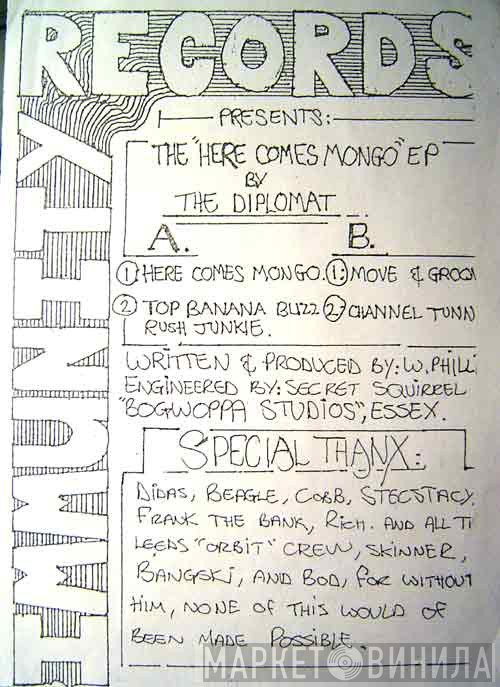 RECORDS
IMMUNITY
PRESENTS:
THE "HERE COMES MONGO" EP
BY
THE DIPLOMAT
A. B.
① HERE COMES MONGO. ①: MOVE & GROO
② TOP BANANA BUZZ ② CHANNEL TUNN
RUSH JUNKIE.
WRITTEN & PRODUCED BY: W. PHILLI
ENGINEERED BY: SECRET SQUIRREL
"BOGWOPPA STUDIOS", ESSEX.
SPECIAL THANX:
DIDAS, BEAGLE, COBB, STECSTACY,
FRANK THE BANK, RICH. AND ALL T
LEEDS "ORBIT" CREW, SKINNER,
BANGSKI, AND BOD, FOR WITHOUT
HIM, NONE OF THIS WOULD OF
BEEN MADE POSSIBLE.
МАРКЕТ ВИНИЛА